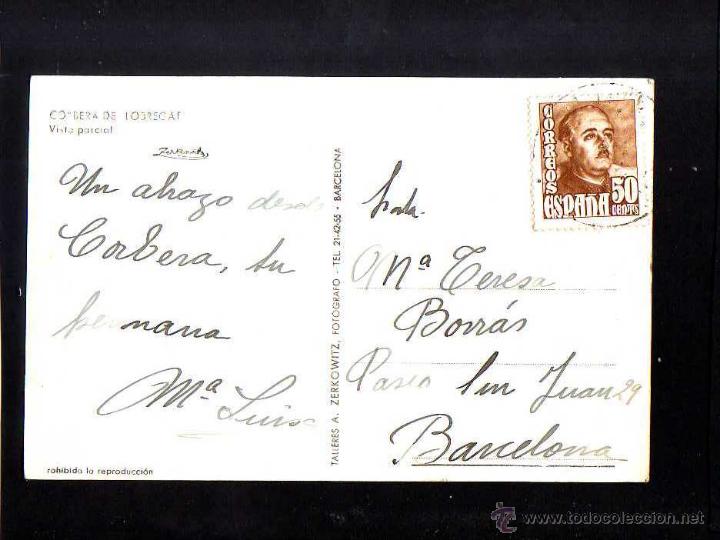 CORBERA DE LLOBREGAT
Vista parcial
Zerkowitz
Un abrazo desde
Corbera, tu
hermana
Mª Luisa
rohibida la reproducción
TALLERES A. ZERKOWITZ, FOTÓGRAFO - TEL. 21-42-55 - BARCELONA
CORREOS
ESPAÑA
50
CENTS
Srta.
Mª Teresa
Borrás
Paseo San Juan 29
Barcelona
© www.todocoleccion.net